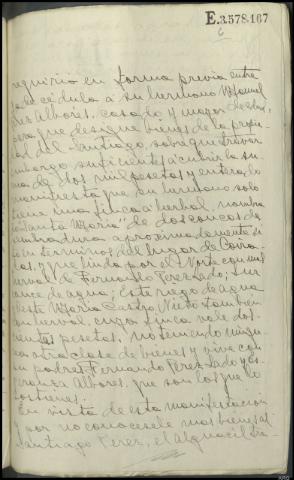 E.3578.167
6
requirio en forma previa entre
ga de cédula a su hermano Manuel
Perez Albores, casado y mayor de edad,
para que designe bienes de la propie
dad del Santiago, sobre que trabar
embargo suficiente a cubrir la su
ma de dos mil pesetas y enterado
manifiesta que su hermano solo
tiene una finca a herbal, nombra
da Santa Maria de dos concos de
sembradura aproximadamente si
ta en terminos del lugar de Coiro
y que linda por el Norte con mas
herval de Fernando Perez Lado; Sur
cauce de agua; Este riego de agua
Oeste Maria Castro Nieto tambien
con herval, cuya finca vale dos
cientas pesetas. no teniendo ningu
na otra clase de bienes y vive con
sus padres Fernando Perez Lado y Es
peranza Albores, que son los que lo
sostienen.
En vista de esta manifestacion
y por no conocersele mas bienes al
Santiago Perez, el Alguacil